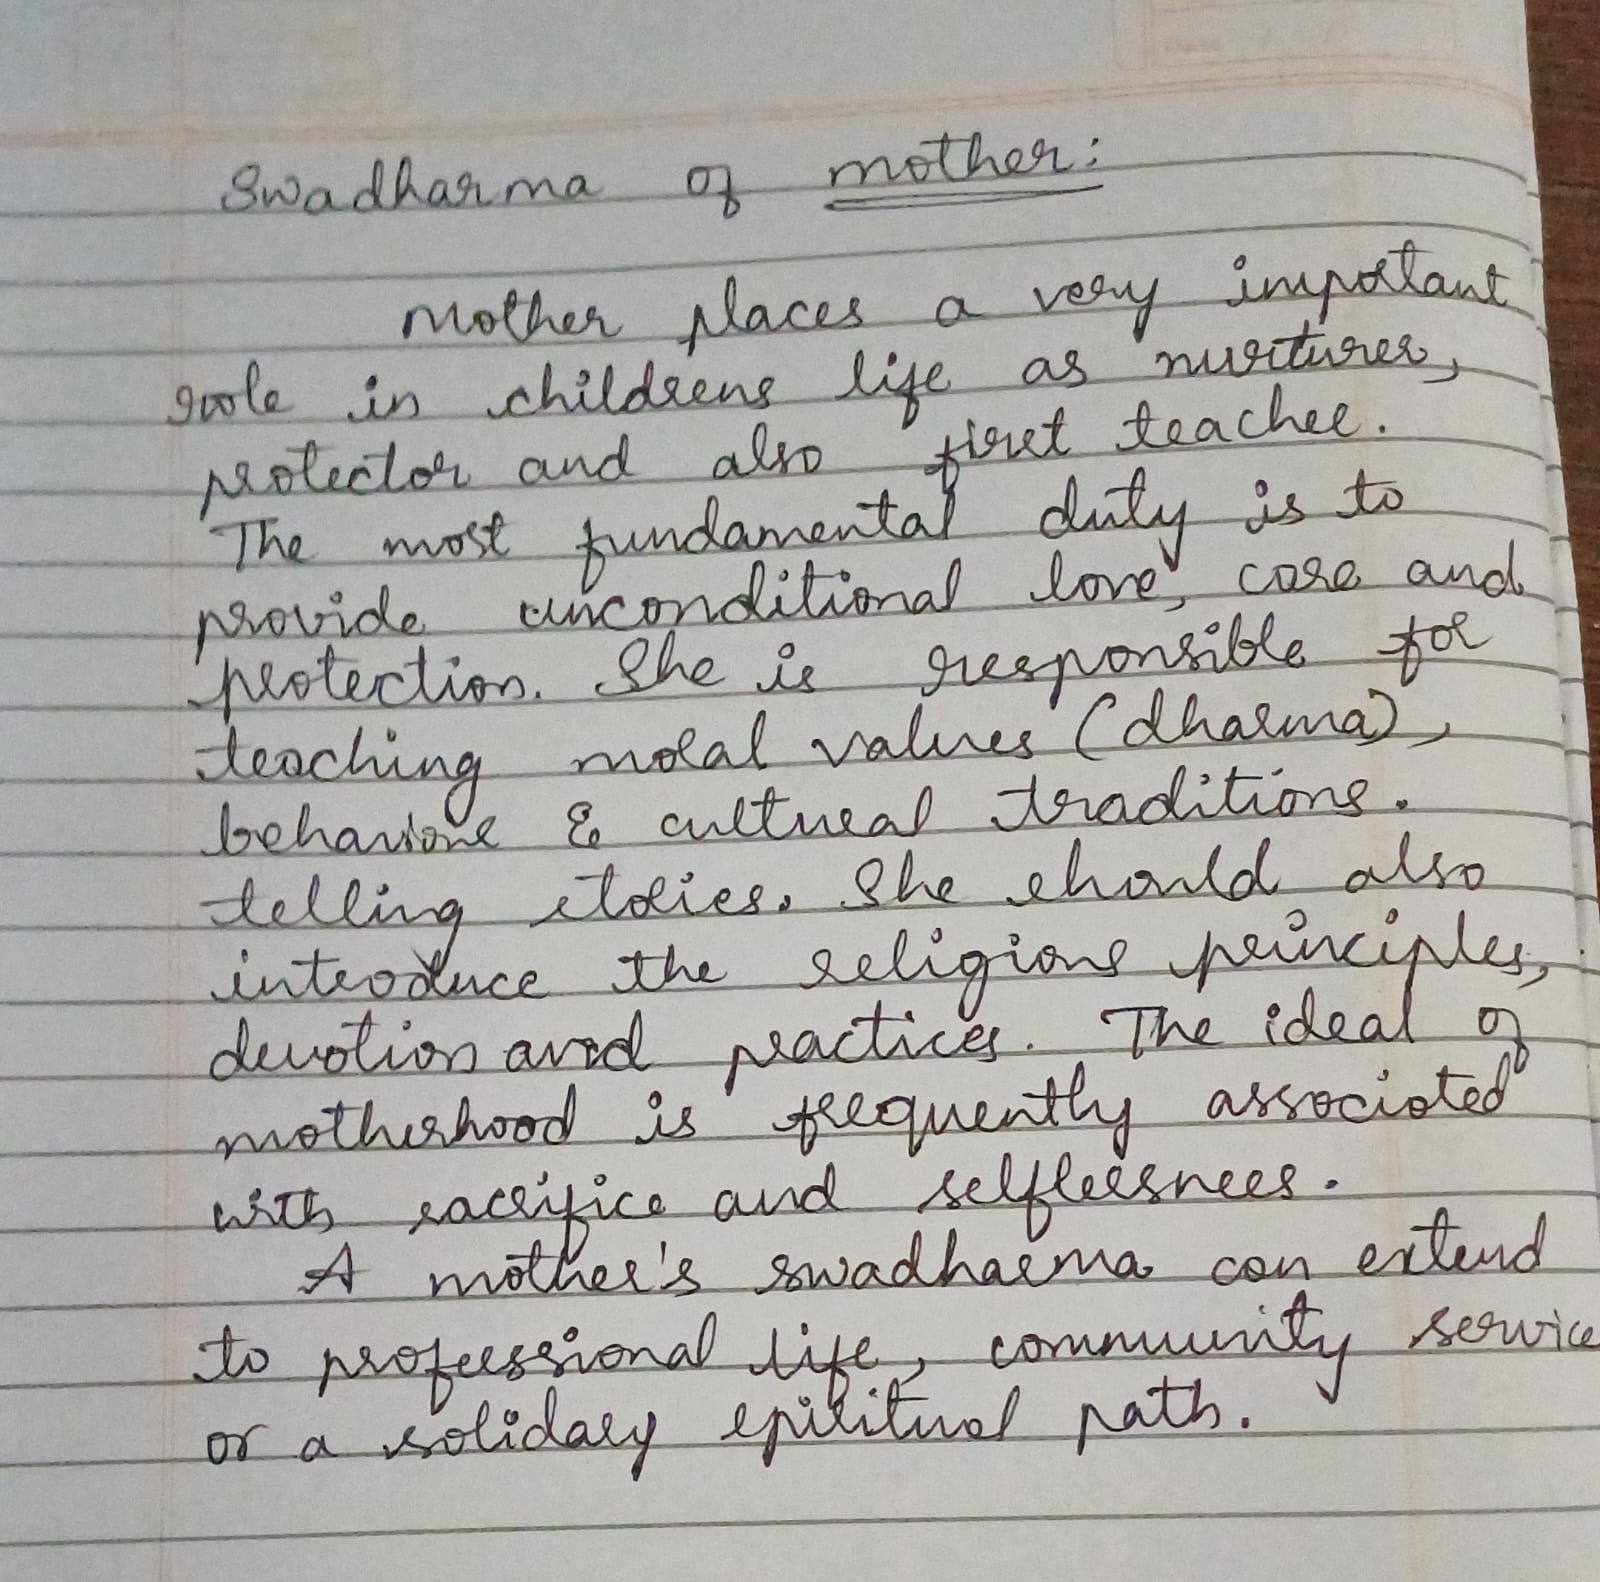 Swadharma of mother:
Mother places a very important
role in childrens life as nurturer,
protector and also first teacher.
The most fundamental duty is to
provide unconditional love, care and
protection. She is responsible for
teaching moral values (dharma),
behaviour & cultural traditions.
telling stories. She should also
introduce the religious principles,
devotion and practices. The ideal of
motherhood is frequently associated
with sacrifice and selflessness.
A mother's swadharma can extend
to professional life, community service
or a solidary spiritual path.